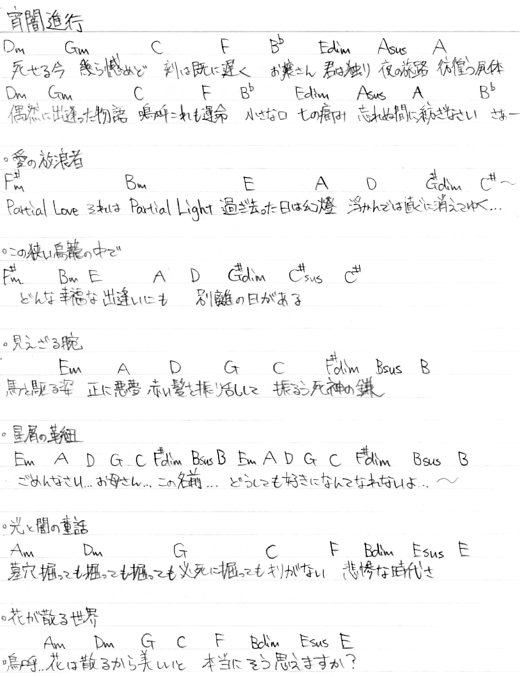 宵闇進行
Dm Gm C F B♭ Edim Asus A
死せる今 幾ら憾めど 刻は既に遅く お嬢さん 君は独り 夜の旅路 彷徨う屍体
Dm Gm C F B♭ Edim Asus A B♭
偶然に出逢った物語 嗚呼これも運命 小さな口 七の痛み 忘れぬ間に紡ぎなさい さぁー
・愛の放浪者
F#m Bm E A D G#dim C#〜
Partial Love それは Partial Light 過ぎ去った日は幻燈 浮かんでは直ぐに消えてゆく…
・この狭い鳥籠の中で
F#m Bm E A D G#dim C#sus C#
どんな幸福な出逢いにも 別離の日がある
・見えざる腕
Em A D G C F#dim Bsus B
馬を駆る姿 正に悪夢 赤い髪を振り乱して 振るう死神の鎌
・星屑の革紐
Em A D G C F#dim Bsus B Em A D G C F#dim Bsus B
ごめんなさい…お母さん…この名前… どうしても好きになんてなれないよ…〜
・光と闇の童話
Am Dm G C F Bdim Esus E
墓穴掘っても掘っても掘っても必死に掘ってもキリがない 悲惨な時代さ
・花が散る世界
Am Dm G C F Bdim Esus E
嗚呼…花は散るから美しいと 本当にそう思えますか？